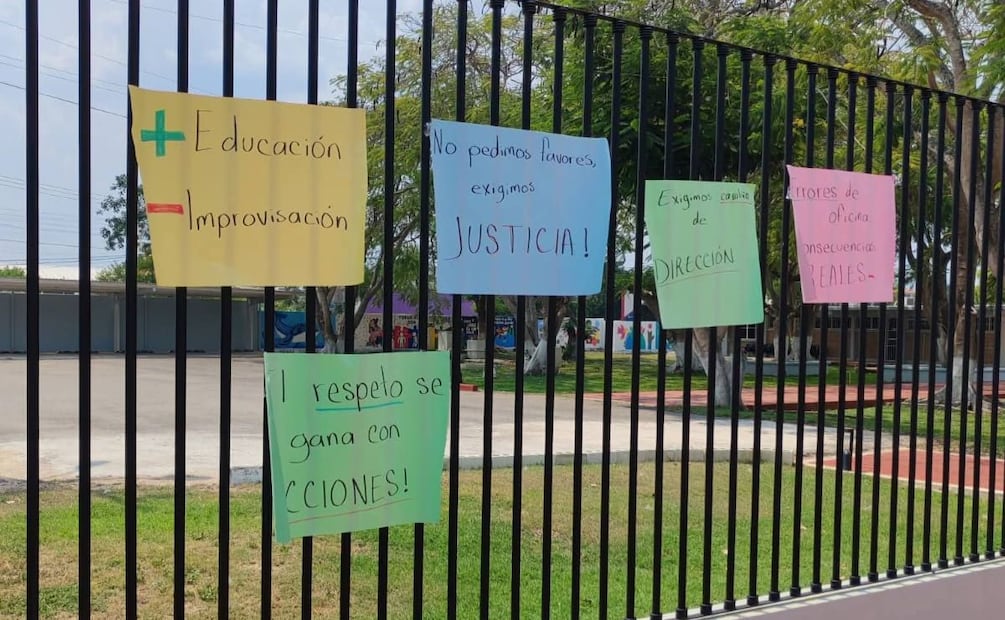 + Educación
- Improvisación
No pedimos favores,
exigimos
JUSTICIA!
Exigimos cambio
de
DIRECCIÓN
Errores de
oficina
onsecuencias
REALES-
l respeto se
gana con
CCIONES!